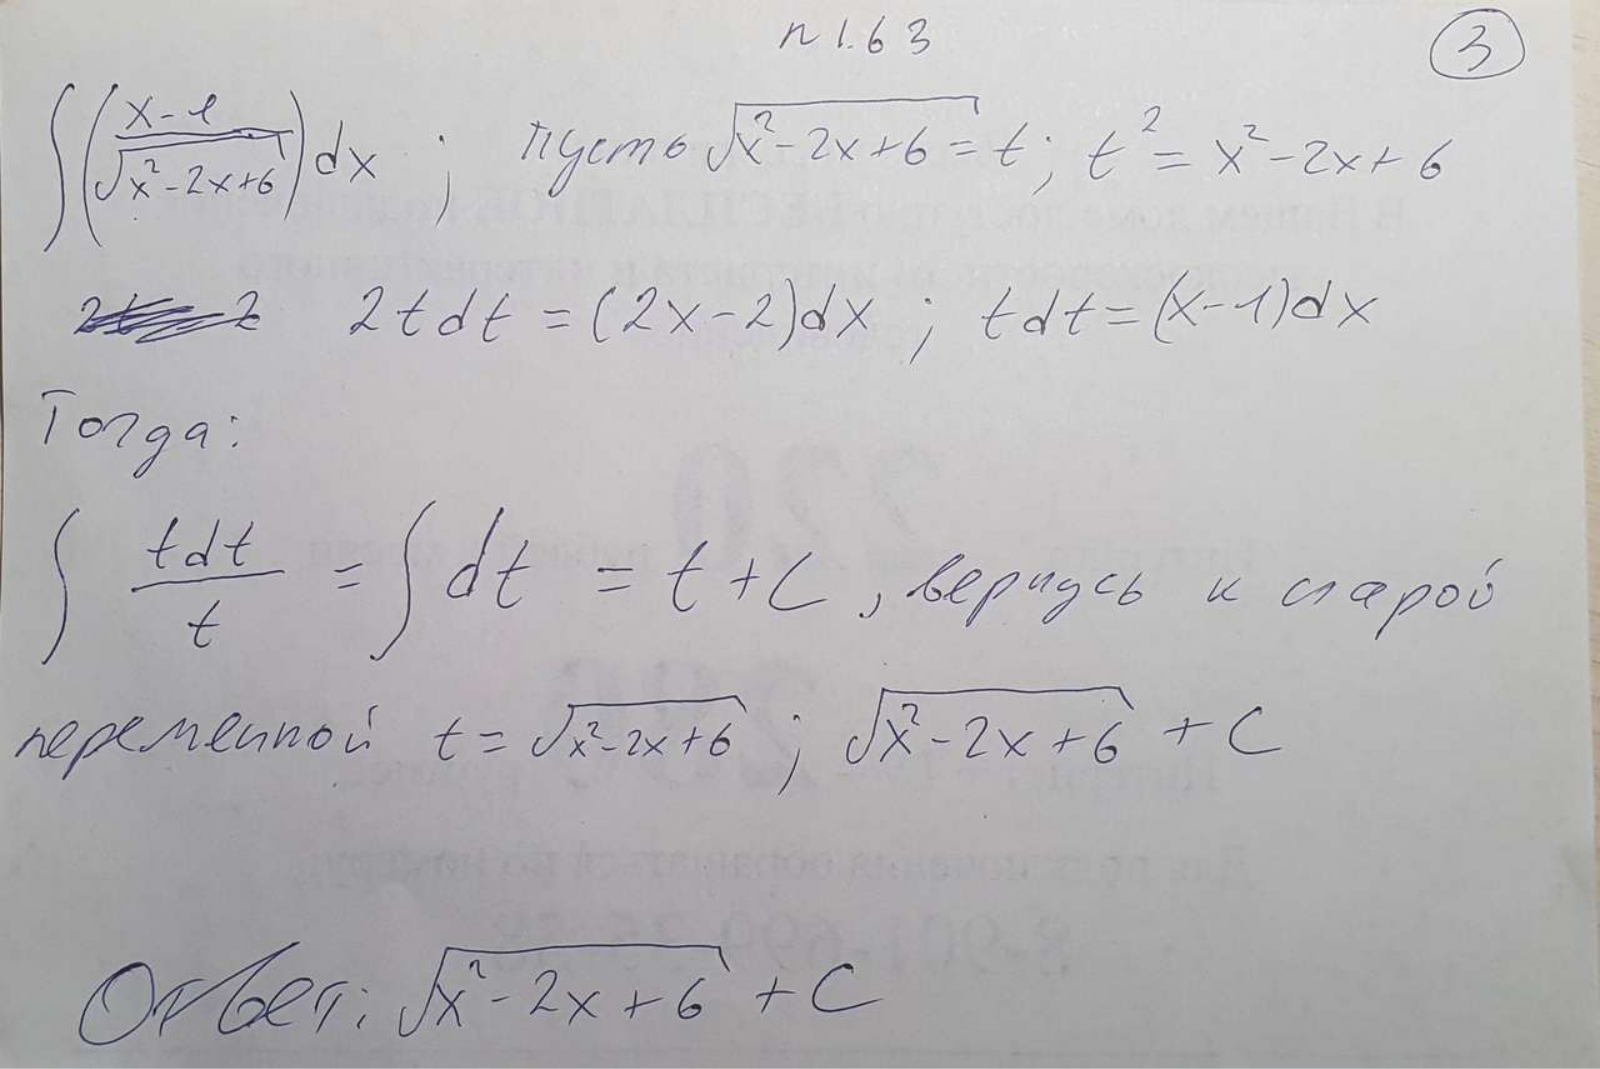 n 1.63
3
∫ ( (x-1) / √(x²-2x+6) ) dx ; пусть √(x²-2x+6) = t ; t² = x²-2x+6
2tdt = (2x-2)dx ; tdt = (x-1)dx
Тогда:
∫ tdt/t = ∫ dt = t + C , вернусь к старой
переменной t = √(x²-2x+6) ; √(x²-2x+6) + C
Ответ: √(x²-2x+6) + C